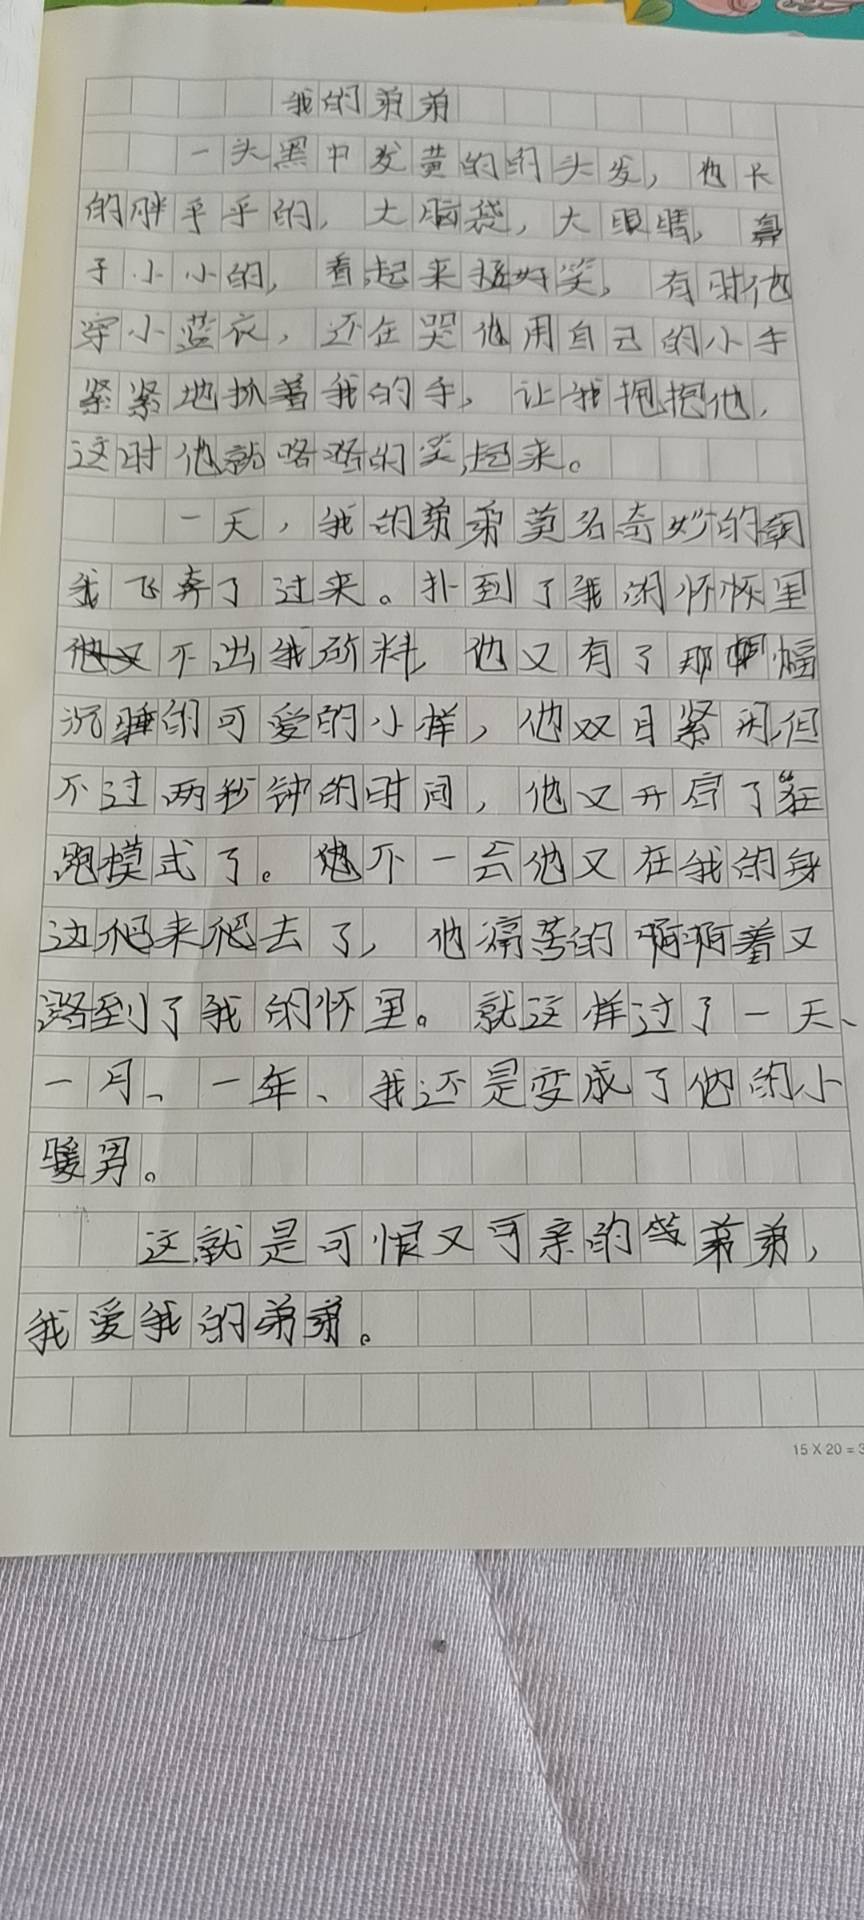 我的弟弟
一头黑中发黄的的头发，他长
的胖乎乎的，大脑袋，大眼睛，鼻
子小小的，看起来挺好笑，有时他
穿小蓝衣，还在哭他用自己的小手
紧紧地抓着我的手，让我抱抱他，
这时他就咯咯的笑起来。
一天，我的弟弟莫名奇妙的朝
我飞奔了过来。扑到了我的怀怀里
他又不出我所料，他又有了那幅
沉睡的可爱的小样，他双目紧闭，但
不过两秒钟的时间，他又开启了狂
跑模式了。他不一会他又在我的身
边爬来爬去了，他痛苦的啊啊着又
到了我的怀里。就这样过了一天、
一月、一年、我还是变成了他的小
暖男。
这就是可恨又可亲的弟弟，
我爱我的弟弟。
15 X 20 = 3